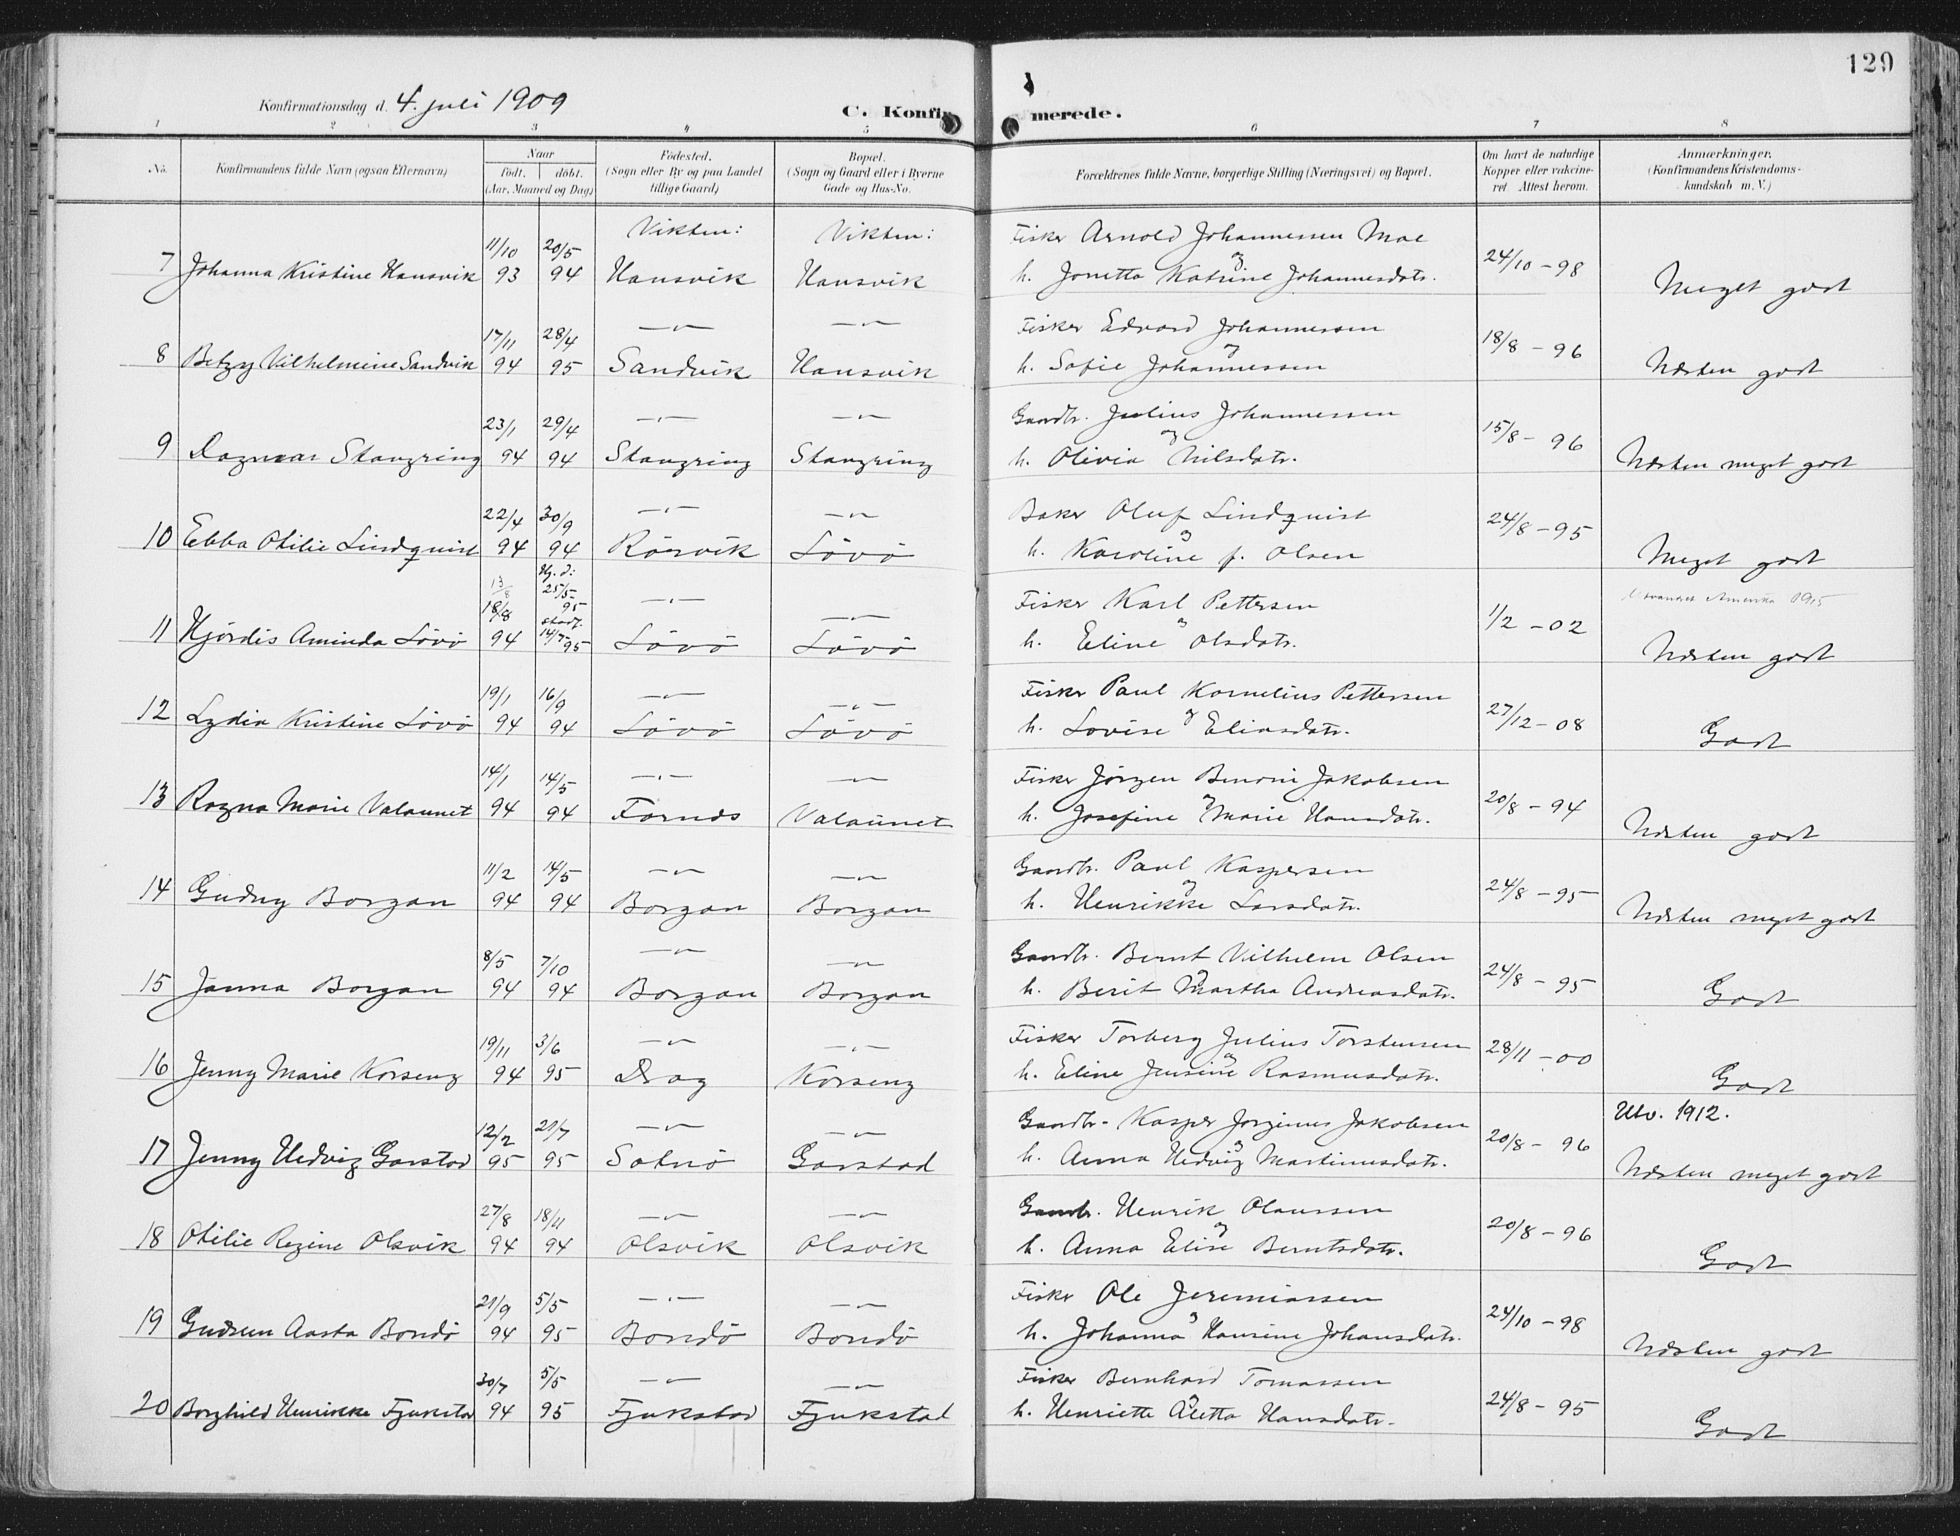 129
Konfirmationsdag d. 4. juli 1909
C. Konfirmerede.
1 2 3 4 5 6 7 8
No. Konfirmandens fulde Navn (ogsaa Efternavn) Naar født. døbt. (Aar, Maaned og Dag) Fødested. (Sogn eller By og paa Landet tillige Gaard) Bopæl. (Sogn og Gaard eller i Byerne Gade og Hus-No. Forældrenes fulde Navne, borgerlige Stilling (Næringsvei) og Bopæl. Om havt de naturlige Kopper eller vakcineret. Attest herom. Anmærkninger. (Konfirmandens Kristendomskundskab m. V.)
11/10 20/5 Vikten: Vikten: Fisker Arnold Johannessen Moe og
7 Johanna Kristine Hansvik 93 94 Hansvik Hansvik h. Jonetta Katrine Johannesdatr. 24/10 - 98 Meget godt
17/11 28/4 —"— —"— Fisker Edvard Johannessen og
8 Betzy Vilhelmine Sandvik 94 95 Sandvik Hansvik h. Sofie Johannessen 18/8 - 96 Næsten godt
23/1 29/4 —"— —"— Gaardbr. Julius Johannessen og
9 Dagmar Stangring 94 94 Stangring Stangring h. Olivia Nilsdatr. 15/8 - 96 Næsten meget godt
22/4 30/9 —"— —"— Baker Oluf Lindquist og
10 Ebba Otilie Lindquist 94 94 Rörvik Lövö h. Karoline f. Olsen 24/8 - 95 Meget godt
13/8 18/8 Hj. d: 25/5 95 stadf. 14/7 95 —"— —"— Fisker Karl Pettersen og Amerika 1915
11 Hjördis Aminda Lövö 94 Lövö Lövö h. Eline Olsdatr. 1/2 - 02 Næsten godt
19/1 16/9 —"— —"— Fisker Paul Kornelius Pettersen og
12 Lydia Kristine Lövö 94 94 Lövö Lövö h. Lovise Eliasdatr. 27/12 - 08 Godt
14/1 14/5 —"— —"— Fisker Jörgen Benoni Jakobsen og
13 Ragna Marie Valaunet 94 94 Fornes Valaunet h. Josefine Marie Hansdatr. 20/8 - 94 Næsten godt
11/2 14/5 —"— —"— Gaardbr. Paul Kaspersen og
14 Gudny Borgan 94 94 Borgan Borgan h. Henrikke Larsdatr. 24/8 - 95 Næsten meget godt
8/5 7/10 —"— —"— Gaardbr. Bernt Vilhelm Olsen og
15 Janna Borgan 94 94 Borgan Borgan h. Berit Martha Andreasdatr. 24/8 - 95 Godt
19/11 3/6 —"— —"— Fisker Torberg Julius Torstensen og
16 Jenny Marie Korseng 94 95 Drag Korseng h. Eline Jensine Rasmusdatr. 28/11 - 00 Godt
12/2 21/7 —"— —"— Gaardbr. Kasper Jörginus Jakobsen og Utv. 1912.
17 Jenny Hedvig Garstad 95 95 Satnö Garstad h. Anna Hedvig Martinusdatr. 20/8 - 96 Næsten meget godt
27/8 18/11 —"— —"— Gaardbr. Henrik Olaussen og
18 Otilie Regine Olsvik 94 94 Olsvik Olsvik h. Anna Elise Berntsdatr. 20/8 - 96 Godt
21/9 5/5 —"— —"— Fisker Ole Jeremiassen og
19 Gudrun Aasta Bondö 94 95 Bondö Bondö h. Johanna Hansine Johansdatr. 24/10 - 98 Næsten godt
30/7 5/5 —"— —"— Fisker Bernhard Tomassen og
20 Borghild Henrikke Fjukstad 94 95 Fjukstad Fjukstad h. Henriette Aletta Hansdatr. 24/8 - 95 Godt